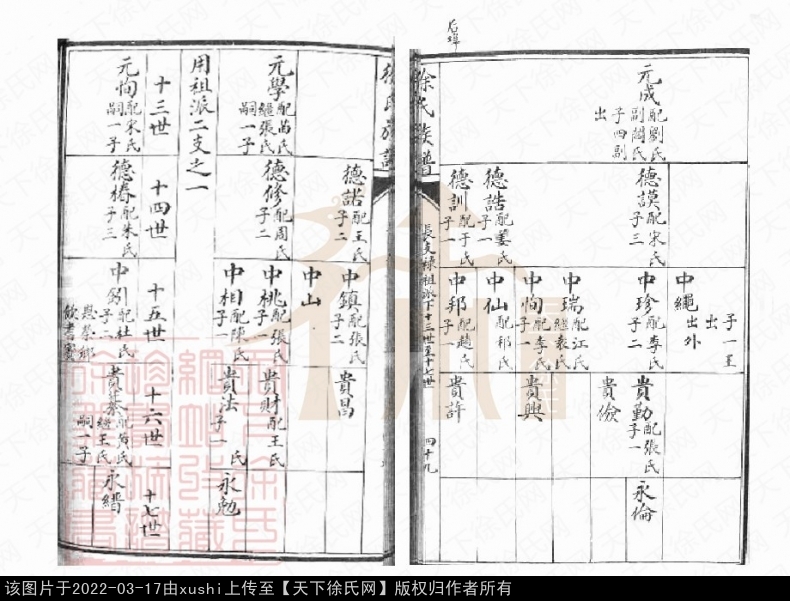 后埠
元成 配劉氏 副閻氏 子四副 出
德謨 配宋氏 子三
德誥 配姜氏 子一
德訓 配于氏 子一
子一王
出
中繩 出外
中珍 配李氏 子二
中瑞 配江氏 繼袁氏
中恂 配李氏 子一
中仙 配祁氏
中邦 配趙氏 子一
貴勤 配張氏 子一
貴儉
貴興
貴許
永倫
徐氏族譜
長支緑祖派下十三世至十七世
四十九
元學 配苗氏 繼張氏 嗣一子
用祖派二支之一
十三世
元恂 配宋氏 嗣一子
德諾 配王氏 子二
德修 配周氏 子二
十四世
德椿 配朱氏 子三
中鎮 配張氏 子二
中山
中桃 配張氏 子一
中相 配陳氏 子一
十五世
中 配杜氏 子二 榮鄉 飲耆賓
貴昌
貴財 配王氏
貴法 氏 子一
十六世
貴 配黃氏 繼王氏 嗣一子
永勉
十七世
永縉
该图片于2022-03-17由xushi上传至【天下徐氏网】版权归作者所有